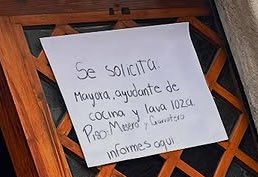 Se solicita:
Mayora, ayudante de
cocina y lava loza.
Piso: Mesero y Garrotero
informes aquí